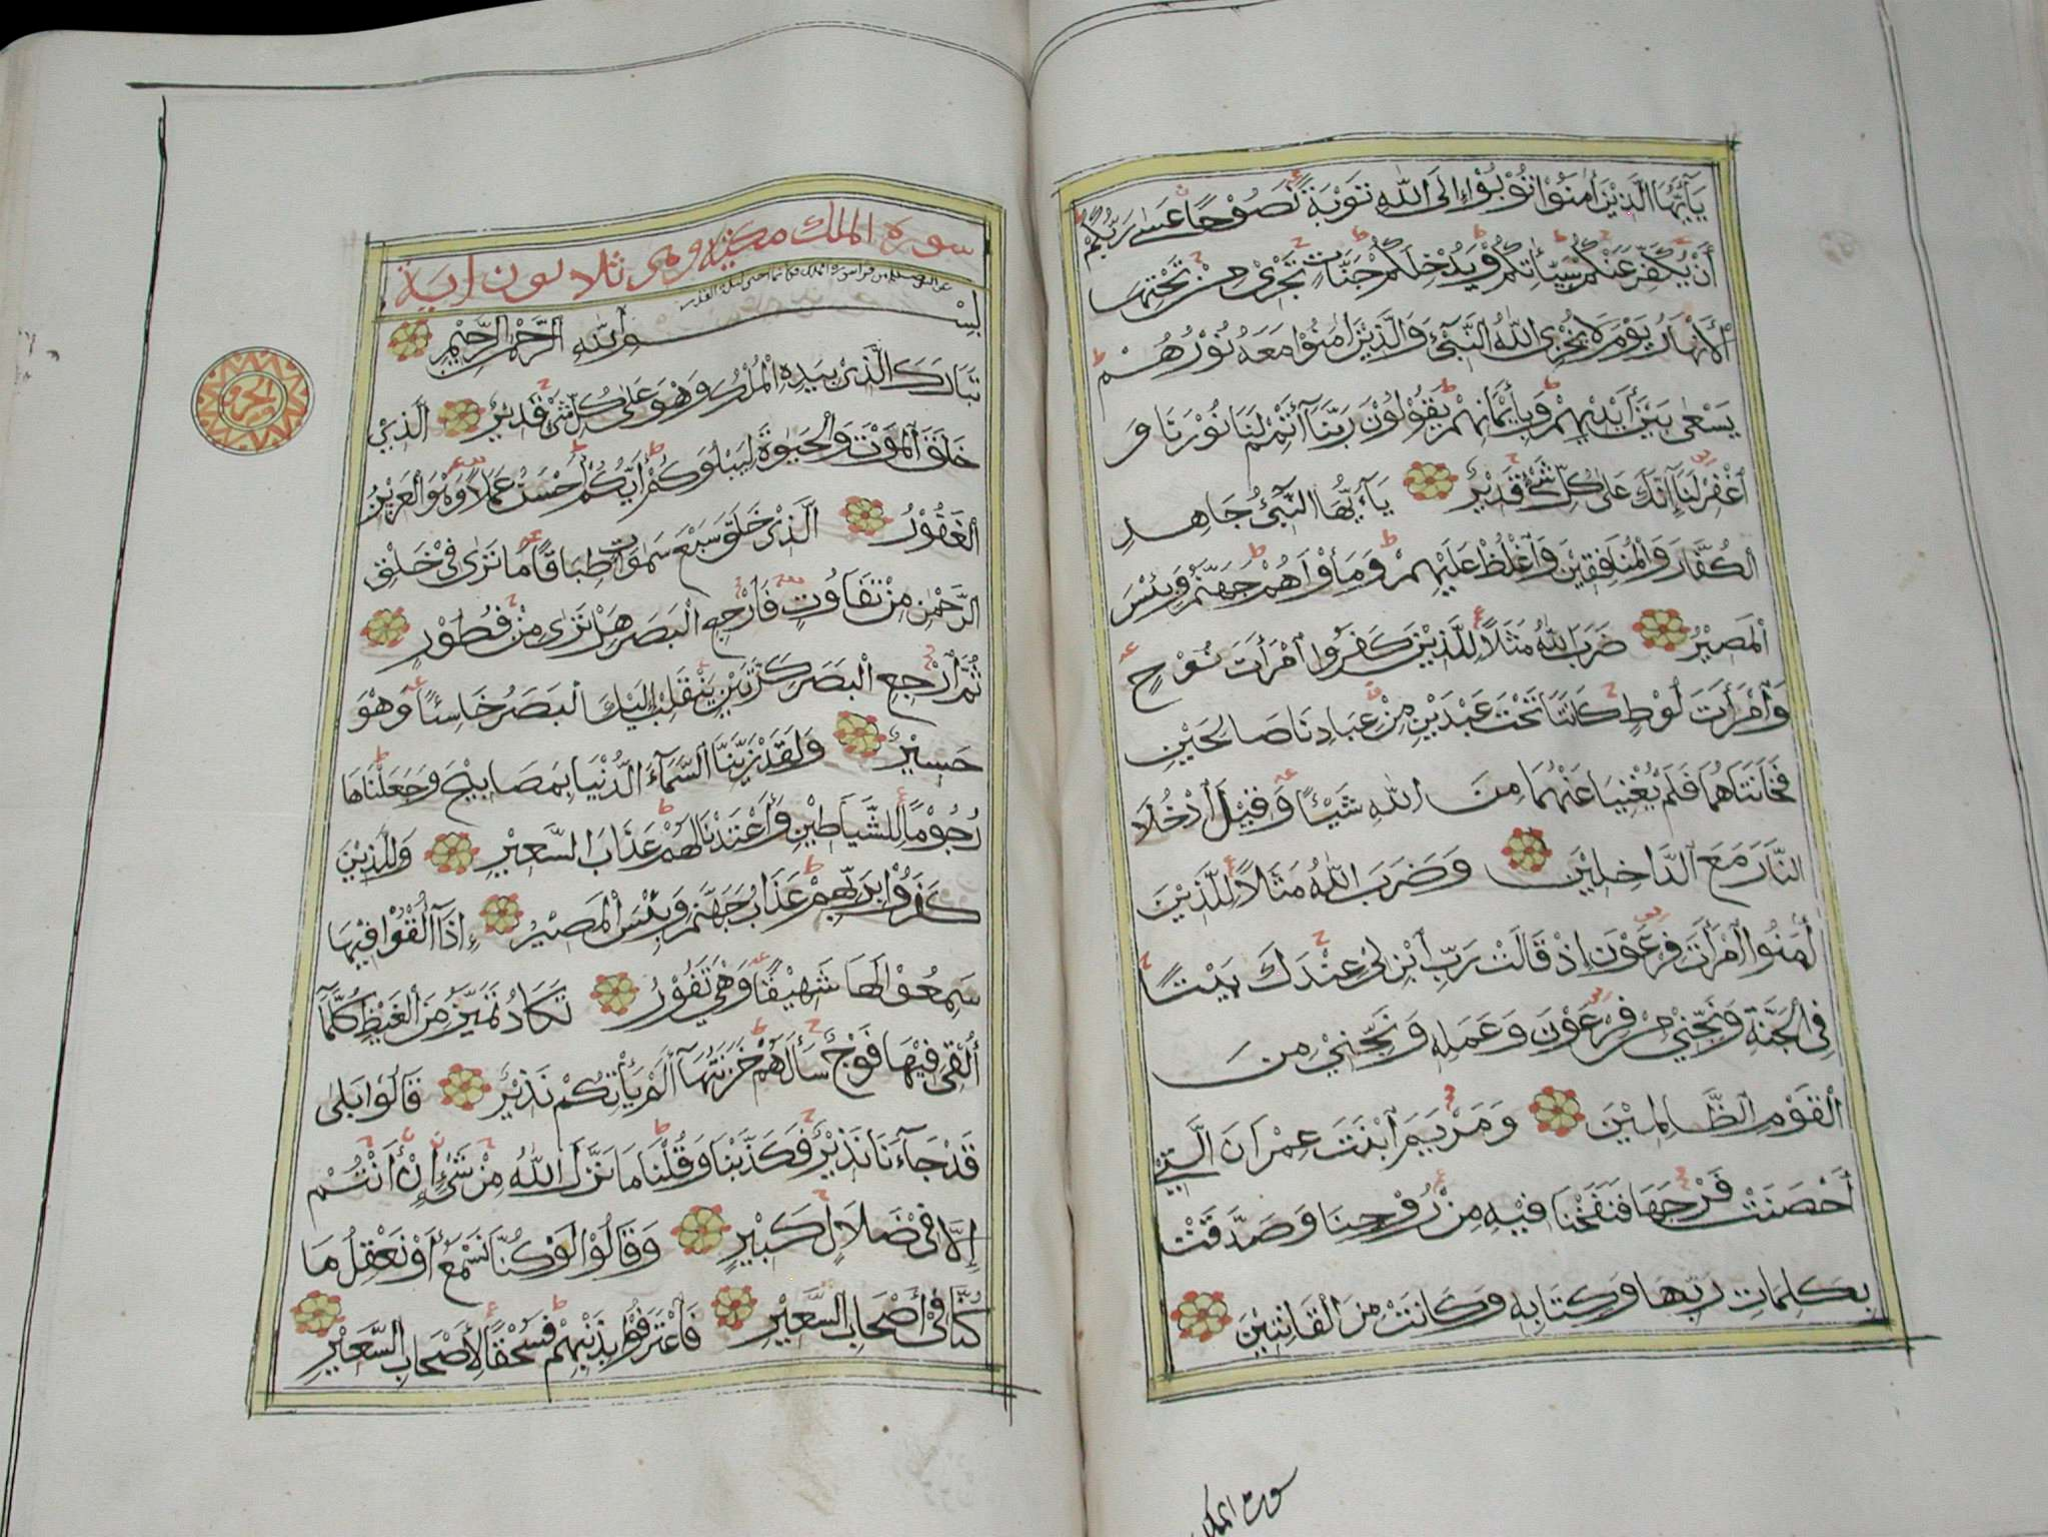 يَآ أَيُّهَا الَّذِيْنَ أٰمَنُوْا تُوْبُوْا إِلَى اللّٰهِ تَوْبَةً نَّصُوْحًا عَسٰى رَبُّكُمْ
أَنْ يُكَفِّرَ عَنْكُمْ سَيِّاٰتِكُمْ وَيُدْخِلَكُمْ جَنَّاتٍ تَجْرِىْ مِنْ تَحْتِهَا
الْأَنْهَارُ يَوْمَ لَا يُخْزِى اللّٰهُ النَّبِىَّ وَالَّذِيْنَ اٰمَنُوْا مَعَهُ نُوْرُهُمْ
يَسْعٰى بَيْنَ أَيْدِيْهِمْ وَبِأَيْمَانِهِمْ يَقُوْلُوْنَ رَبَّنَآ أَتْمِمْ لَنَا نُوْرَنَا وَ
اغْفِرْ لَنَا إِنَّكَ عَلٰى كُلِّ شَىْءٍ قَدِيْرٌ يَآ أَيُّهَا النَّبِىُّ جَاهِدِ
الْكُفَّارَ وَالْمُنَافِقِيْنَ وَاغْلُظْ عَلَيْهِمْ وَمَأْوَاهُمْ جَهَنَّمُ وَبِئْسَ
الْمَصِيْرُ ضَرَبَ اللّٰهُ مَثَلًا لِّلَّذِيْنَ كَفَرُوا امْرَأَتَ نُوْحٍ
وَامْرَأَتَ لُوْطٍ كَانَتَا تَحْتَ عَبْدَيْنِ مِنْ عِبَادِنَا صَالِحَيْنِ
فَخَانَتَاهُمَا فَلَمْ يُغْنِيَا عَنْهُمَا مِنَ اللّٰهِ شَيْئًا وَقِيْلَ ادْخُلَا
النَّارَ مَعَ الدَّاخِلِيْنَ وَضَرَبَ اللّٰهُ مَثَلًا لِّلَّذِيْنَ
أٰمَنُوا امْرَأَتَ فِرْعَوْنَ إِذْ قَالَتْ رَبِّ ابْنِ لِىْ عِنْدَكَ بَيْتًا
فِى الْجَنَّةِ وَنَجِّنِىْ مِنْ فِرْعَوْنَ وَعَمَلِهِ وَنَجِّنِىْ مِنَ
الْقَوْمِ الظَّالِمِيْنَ وَمَرْيَمَ ابْنَتَ عِمْرَانَ الَّتِىْ
أَحْصَنَتْ فَرْجَهَا فَنَفَخْنَا فِيْهِ مِنْ رُّوْحِنَا وَصَدَّقَتْ
بِكَلِمَاتِ رَبِّهَا وَكِتَابِهِ وَكَانَتْ مِنَ الْقَانِتِيْنَ
سورة الملك
سورة الملك مكية وهى ثلاثون اية
بِسْمِ اللّٰهِ الرَّحْمٰنِ الرَّحِيْمِ
تَبَارَكَ الَّذِىْ بِيَدِهِ الْمُلْكُ وَهْوَ عَلٰى كُلِّ شَىْءٍ قَدِيْرٌ الَّذِىْ
خَلَقَ الْمَوْتَ وَالْحَيٰوةَ لِيَبْلُوَكُمْ أَيُّكُمْ أَحْسَنُ عَمَلًا وَهْوَ الْعَزِيْزُ
الْغَفُوْرُ الَّذِىْ خَلَقَ سَبْعَ سَمٰوَاتٍ طِبَاقًا مَا تَرٰى فِىْ خَلْقِ
الرَّحْمٰنِ مِنْ تَفَاوُتٍ فَارْجِعِ الْبَصَرَ هَلْ تَرٰى مِنْ فُطُوْرٍ
ثُمَّ ارْجِعِ الْبَصَرَ كَرَّتَيْنِ يَنْقَلِبْ إِلَيْكَ الْبَصَرُ خَاسِئًا وَهْوَ
حَسِيْرٌ وَلَقَدْ زَيَّنَّا السَّمَآءَ الدُّنْيَا بِمَصَابِيْحَ وَجَعَلْنَاهَا
رُجُوْمًا لِّلشَّيَاطِيْنِ وَأَعْتَدْنَا لَهُمْ عَذَابَ السَّعِيْرِ وَلِلَّذِيْنَ
كَفَرُوْا بِرَبِّهِمْ عَذَابُ جَهَنَّمَ وَبِئْسَ الْمَصِيْرُ إِذَآ أُلْقُوْا فِيْهَا
سَمِعُوْا لَهَا شَهِيْقًا وَهْىَ تَفُوْرُ تَكَادُ تَمَيَّزُ مِنَ الْغَيْظِ كُلَّمَآ
أُلْقِىَ فِيْهَا فَوْجٌ سَأَلَهُمْ خَزَنَتُهَآ أَلَمْ يَأْتِكُمْ نَذِيْرٌ قَالُوْا بَلٰى
قَدْ جَآءَنَا نَذِيْرٌ فَكَذَّبْنَا وَقُلْنَا مَا نَزَّلَ اللّٰهُ مِنْ شَىْءٍ إِنْ أَنْتُمْ
إِلَّا فِىْ ضَلَالٍ كَبِيْرٍ وَقَالُوْا لَوْ كُنَّا نَسْمَعُ أَوْ نَعْقِلُ مَا
كُنَّا فِىْ أَصْحَابِ السَّعِيْرِ فَاعْتَرَفُوْا بِذَنْبِهِمْ فَسُحْقًا لِّأَصْحَابِ السَّعِيْرِ